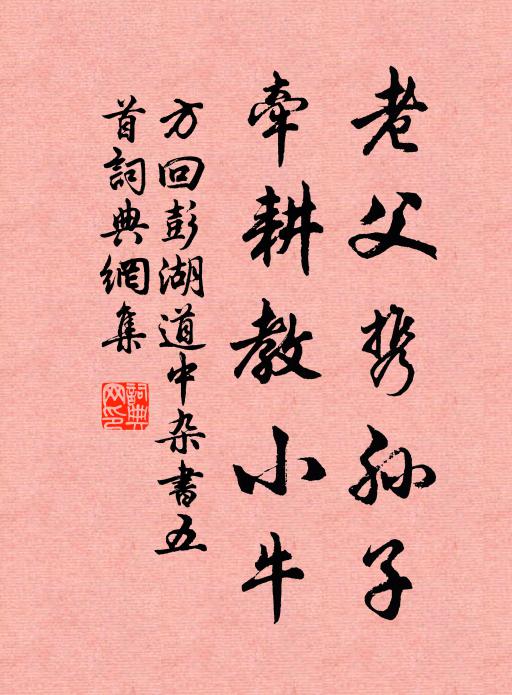 老父携孙子
牵耕教小牛
方回彭湖道中杂书五
首詞典網集
詞典
网印